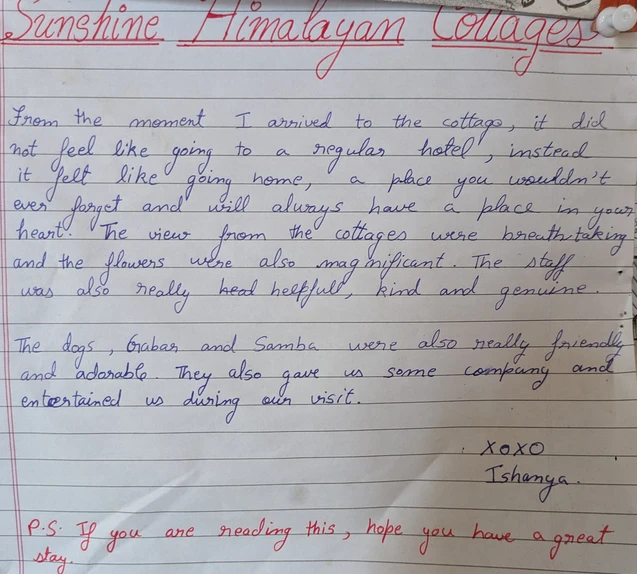 Sunshine Himalayan Cottages
From the moment I arrived to the cottage, it did
not feel like going to a regular hotel, instead
it felt like going home, a place you wouldn't
ever forget and will always have a place in your
heart. The view from the cottages were breathtaking
and the flowers were also magnificant. The staff
was also really helpfull, kind and genuine.
The dogs, Gabar and Samba were also really friendly
and adorable. They also gave us some company and
entertained us during our visit.
XOXO
Ishanya.
P.S. If you are reading this, hope you have a great
stay.